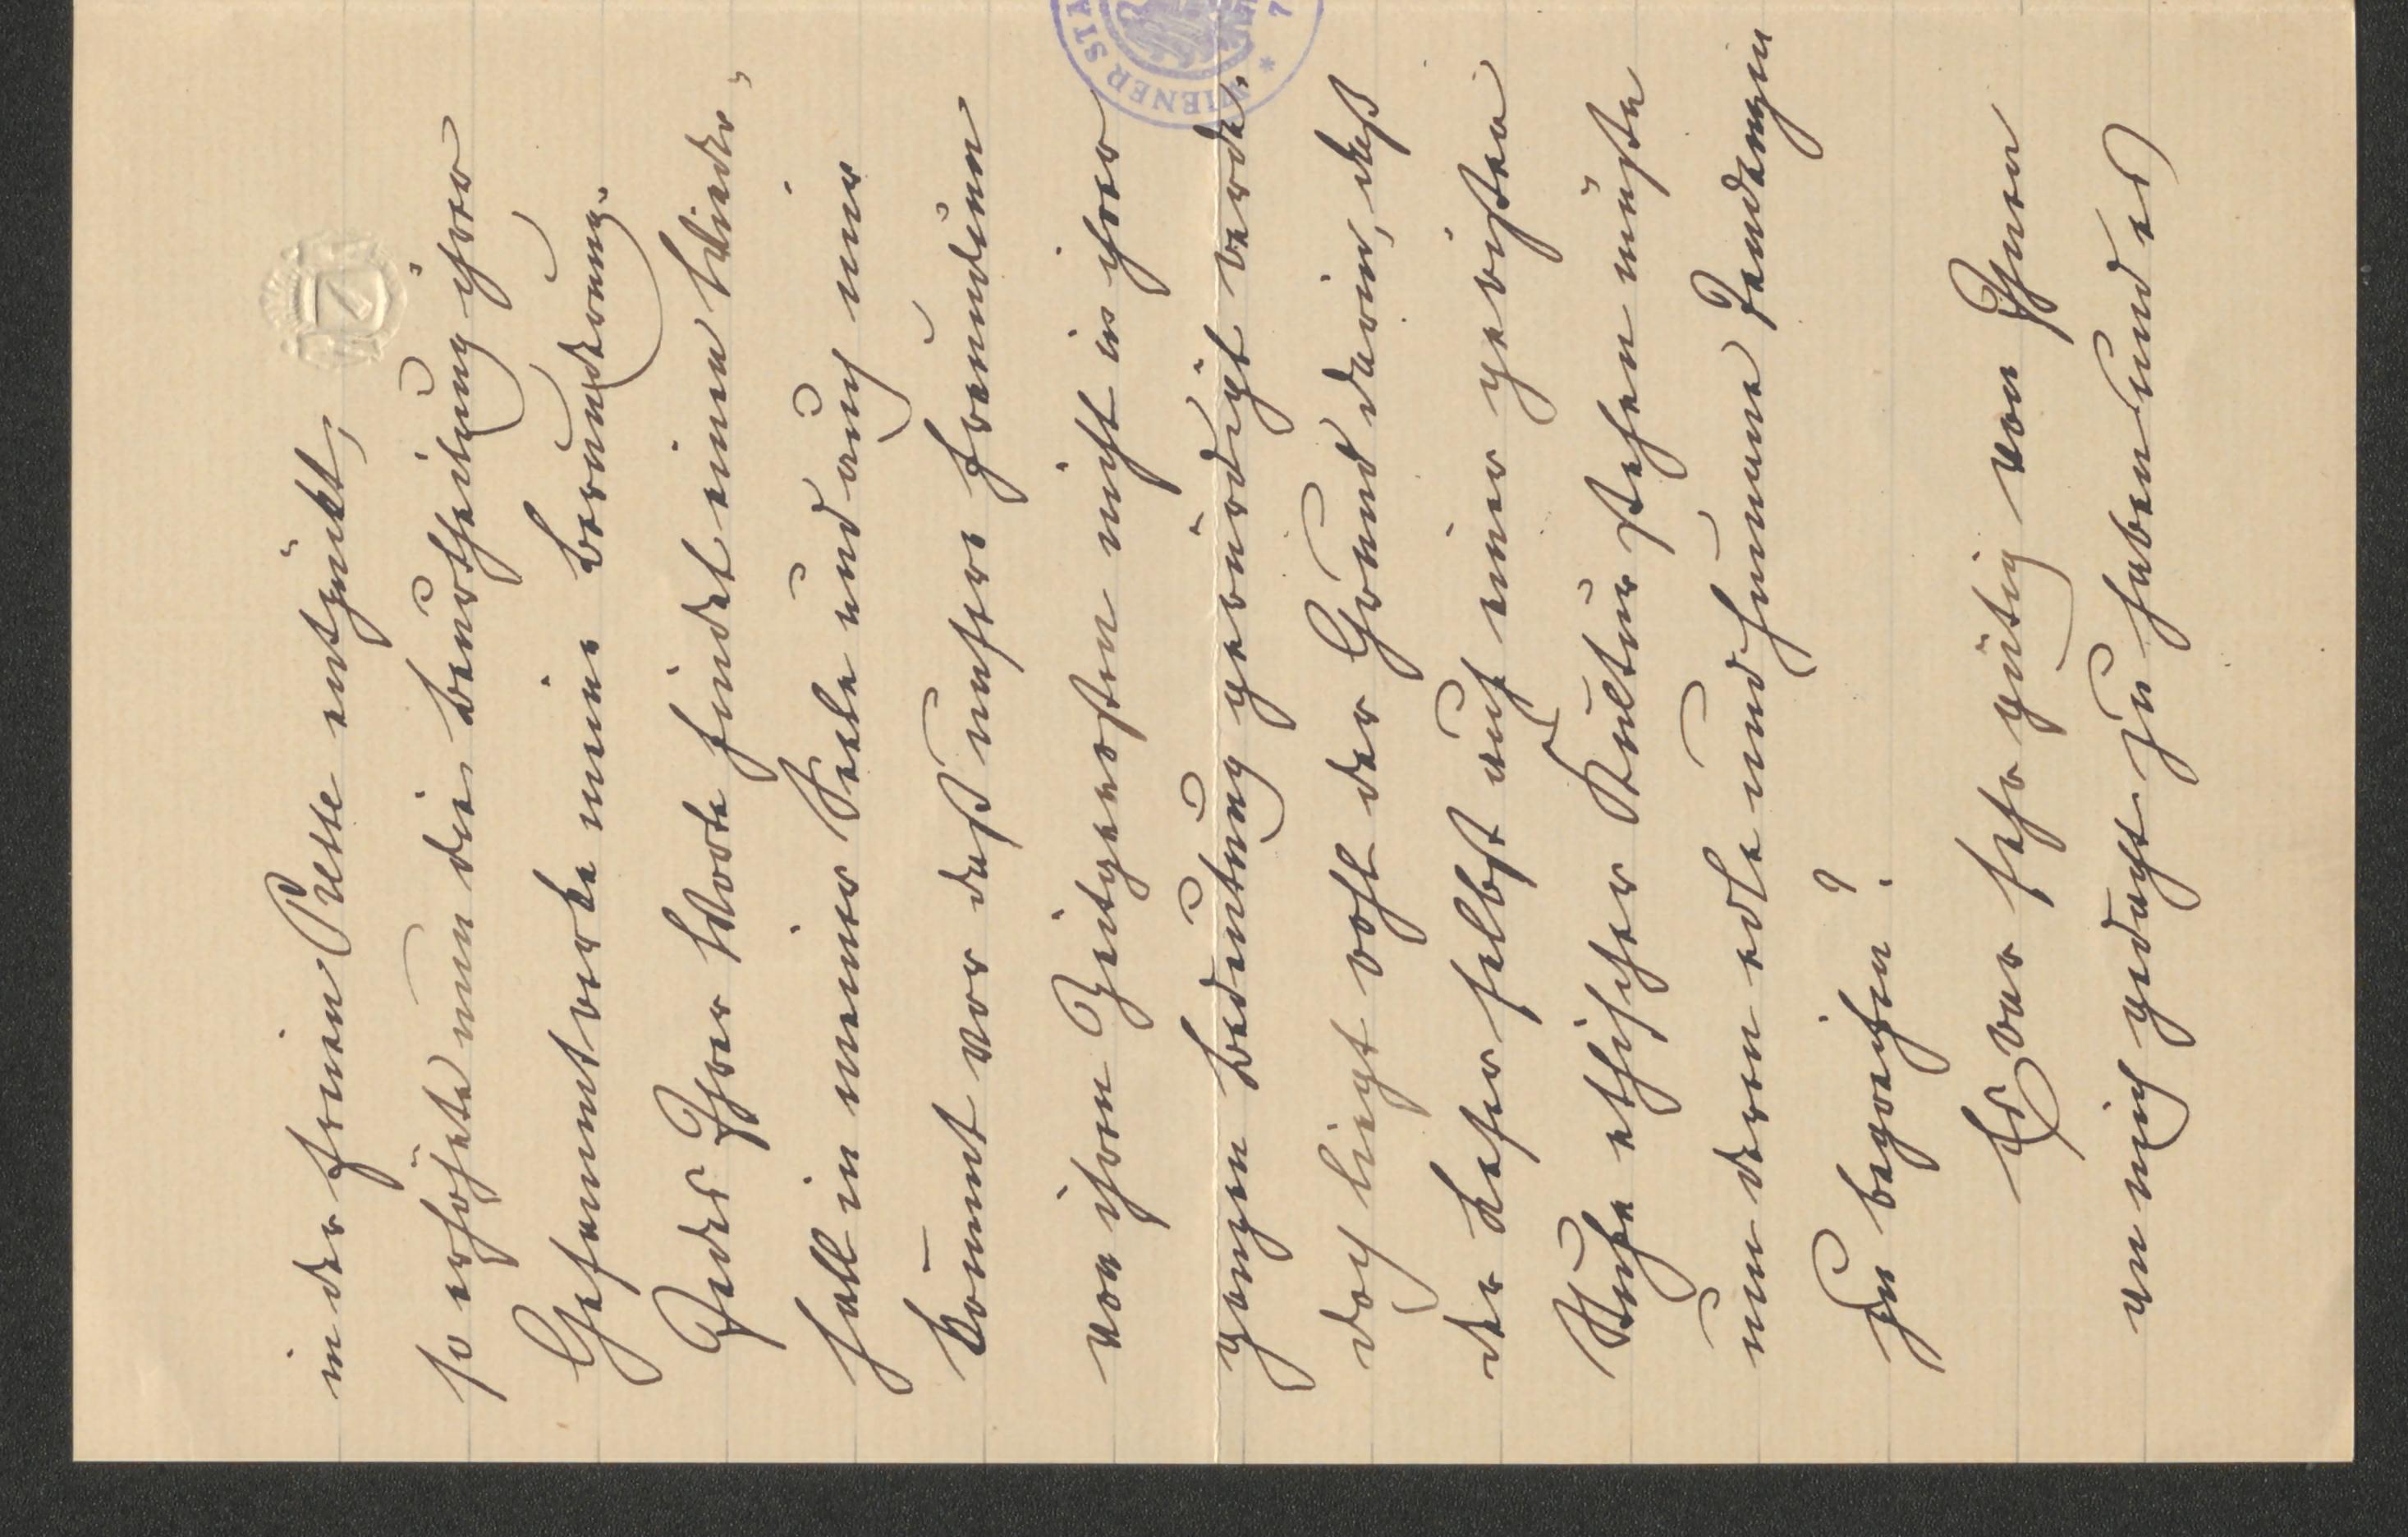 in der freien Stelle entzückt,
so erhöhte nun die Beurtheilung ihrer
Gesammtwerke meine Bewunderung.
Jedes Ihrer Worte findet einen Wieder-
hall in meiner Seele und auch mir
kommt vor daß unsere Freundinn
von ihren Zeitgenossen nicht in ihrer
ganzen Bedeutung gewürdigt werde.
doch liegt wohl der Grund darin, daß
der Leser selbst auf einer gewissen
Stufe ethischer Kultur stehen müsste
um deren edle und humane Tendenzen
zu begreifen?
Es war sehr gütig von Ihnen
an mich gedacht zu haben und es
WIENER STA
* 7